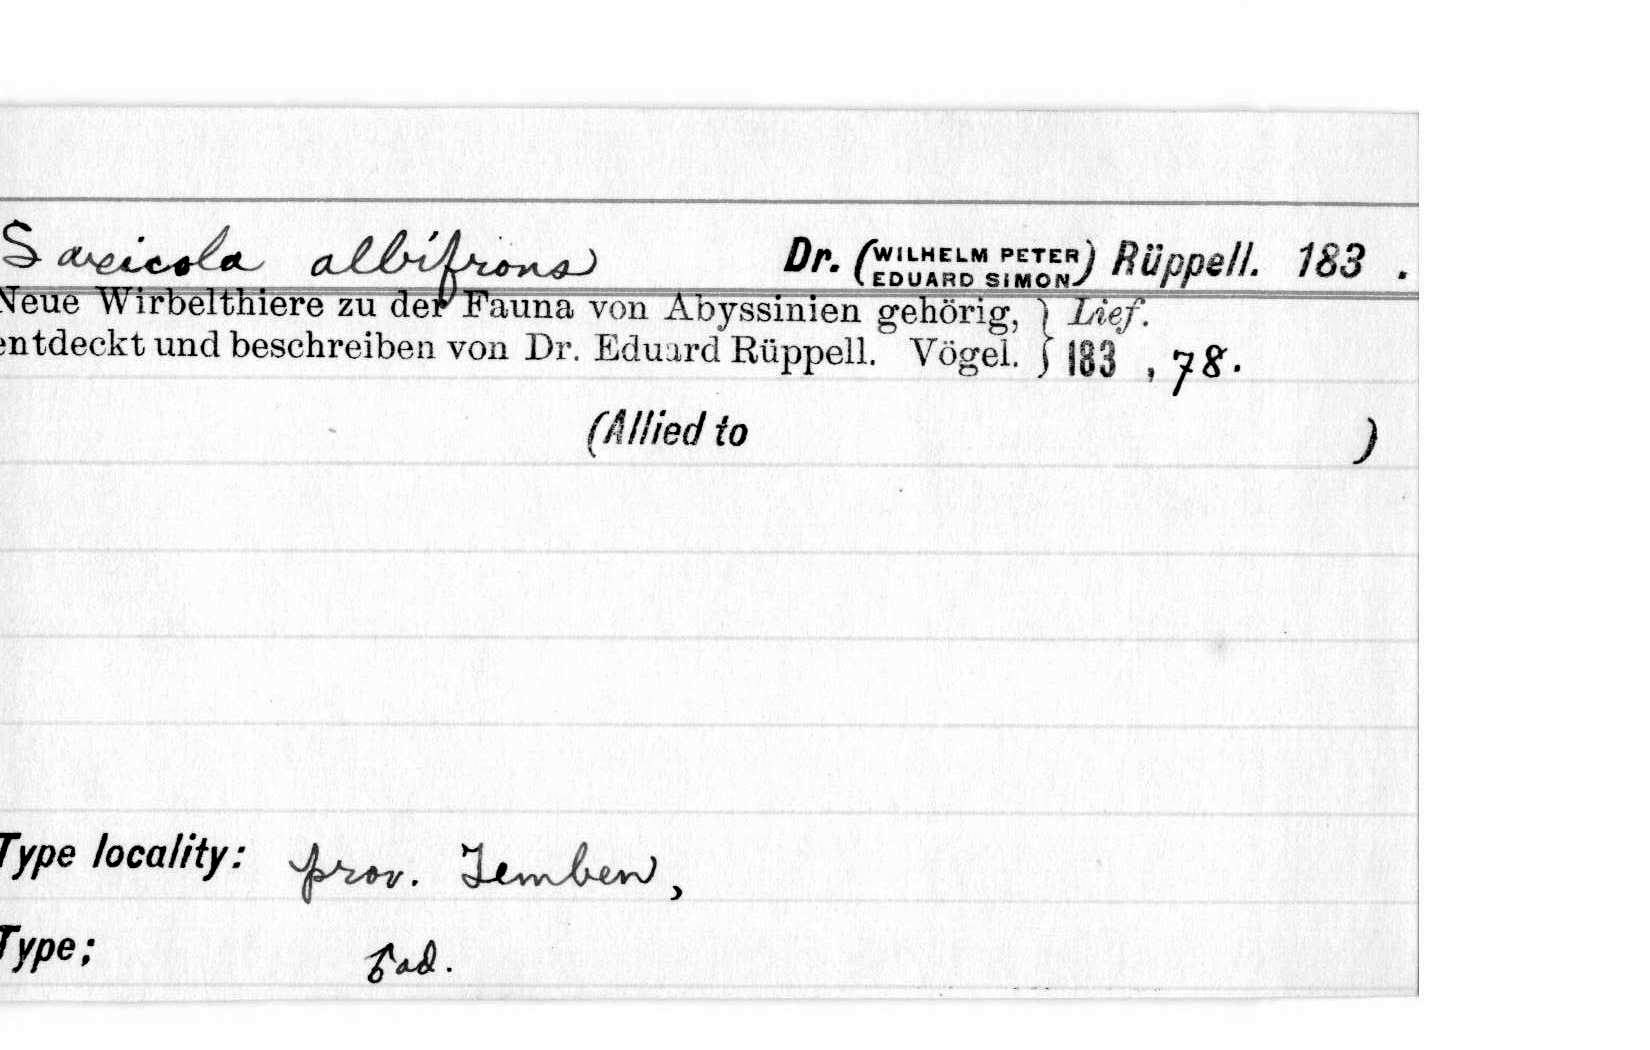 Saxicola albifrons Dr. (WILHELM PETER EDUARD SIMON) Rüppell. 183 .
Neue Wirbelthiere zu der Fauna von Abyssinien gehörig, } Lief.
entdeckt und beschreiben von Dr. Eduard Rüppell. Vögel. } 183 , 78.
(Allied to )
Type locality: prov. Temben,
Type; ♂ad.